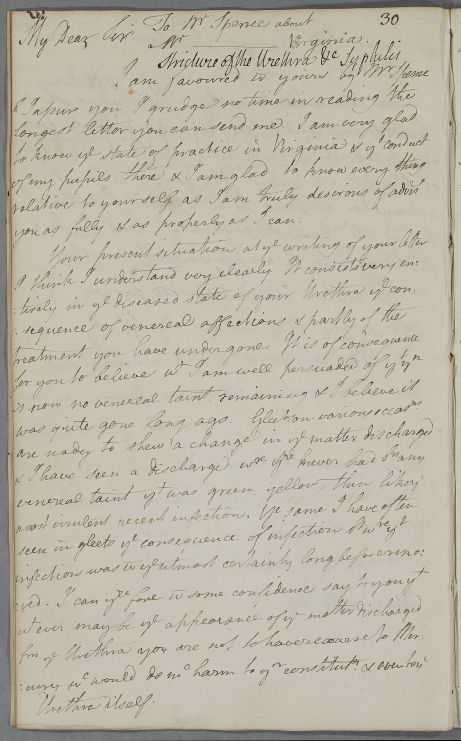 30
My Dear Sir To Mr Spence about
Mr Virginia.
Stricture of the Urethra &c Syphilis
I am favoured w yours by Mr Spence
& I assure you I grudge no time in reading the
longest letter you can send me. I am very glad
to know ye state of practice in Virginia & ye conduct
of my pupils there & I am glad to know every thing
relative to yourself as I am truly desirous of advis.
you as fully & as properly as I can.
Your present situation at ye writing of your letter
I think I understand very clearly. It consists very en:
:tirely in ye diseased state of your Urethra ye con:
:sequence of venereal affections & partly of the
treatment you have undergone. It is of consequence
for you to believe wt I am well persuaded of yt yre
is now no venereal taint remaining & I believe it
was quite gone long ago. Gleets on various occasns
are ready to shew a change in ye matter discharged
& I have seen a discharge wre yre never had been any
venereal taint yt was green, yellow, thin like ye
most virulent recent infection. Ye same I have often
seen in gleets ye consequence of infection & wre yt
infection was w ye utmost certainty long before remo:
:ved. I can yre fore w some confidence say to you yt
wt ever may be ye appearance of ye matter discharged
from ye Urethra you are not to have recourse to Mer:
:cury wc would do mc harm to yr constitutn & even to ye
Urethra itself.